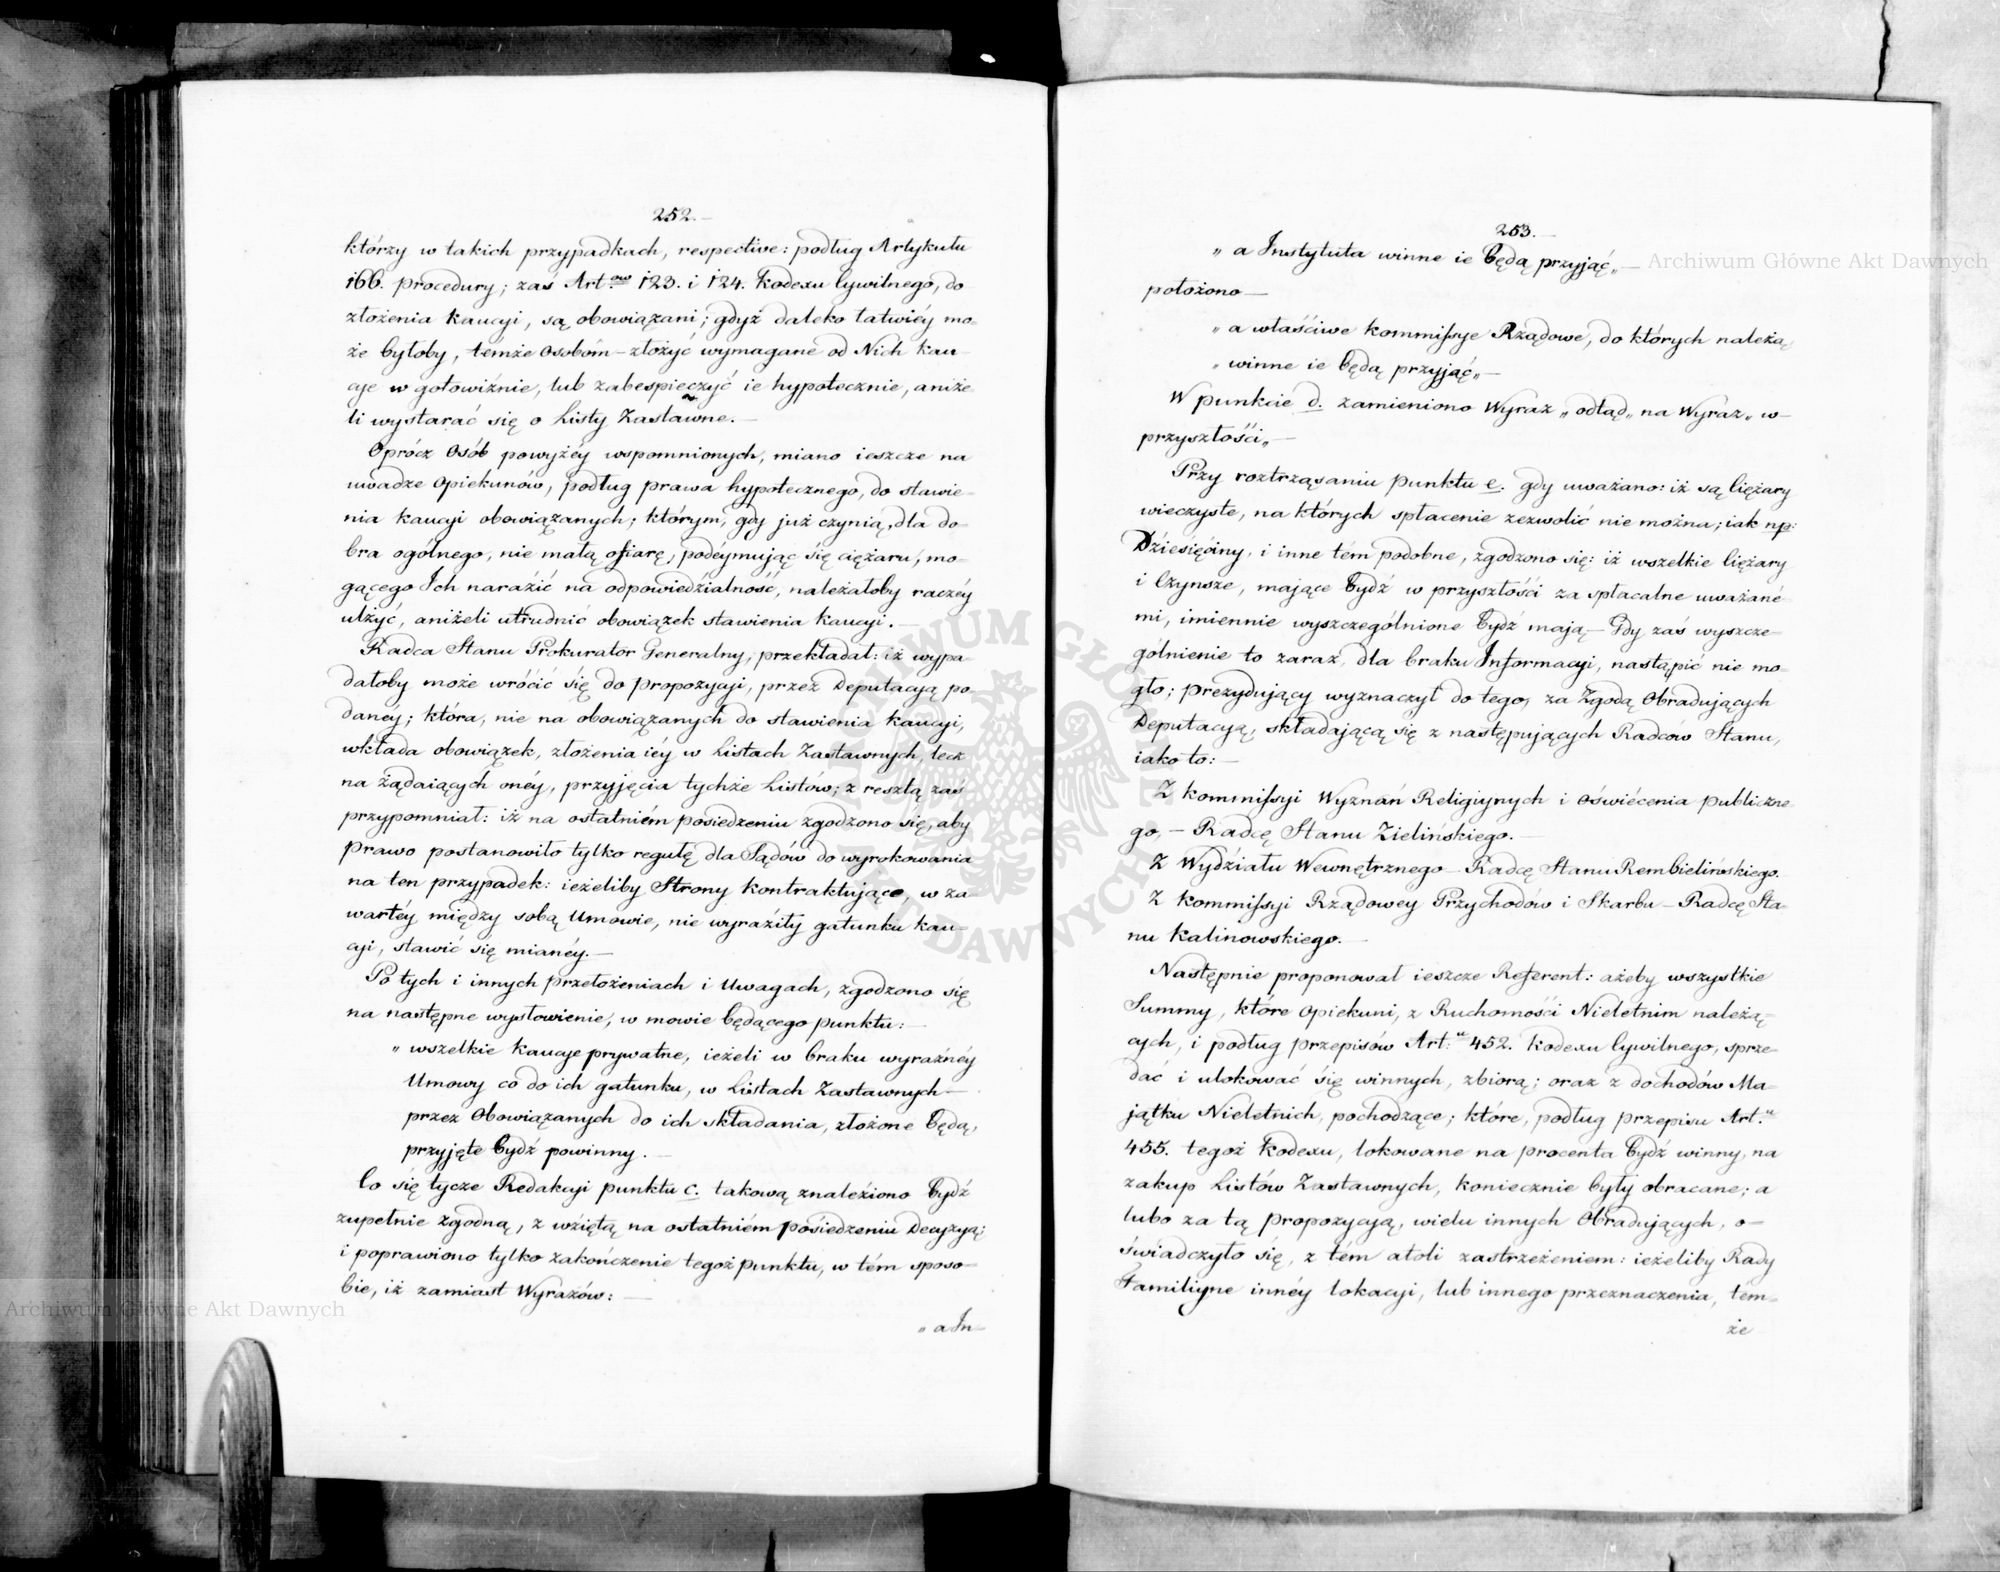 252.
którzy w takich przypadkach, respective: podług Artykułu
166. Procedury; zaś Art.ów 123. i 124. Kodexu Cywilnego, do
złożenia Kaucyi, są obowiązani; gdyż daleko łatwiéy mo-
że byłoby, témże Osobóm – złożyć wymagane od Nich Kau-
cje w gotowiźnie, lub zabespieczyć ie hypotecznie, aniże-
li wystarać się o Listy Zastawne. —
Oprócz Osób powyżéy wspomnionych, miano ieszcze na
uwadze Opiekunów, podług prawa hypotecznego, do stawie-
nia Kaucyi obowiązanych; którym, gdy już czynią, dla do-
bra ogólnego, nie małą ofiarę, podéymując się ciężaru, mo-
gącego Ich narazić na odpowiedzialność, należałoby raczéy
ulżyć, aniżeli utrudnić obowiązek stawienia Kaucyi. —
Radca Stanu Prokurator Generalny, przekładał: iż wypa-
dałoby może wrócić się do Propozycyi, przez Deputacyą po
danéy; która, nie na obowiązanych do stawienia Kaucyi,
wkłada obowiązek, złożenia iéy w Listach Zastawnych, lecz
na żądaiących onéy, przyjęcia tychże Listów; z resztą zaś
przypomniał: iż na ostatniém posiedzeniu zgodzono się, aby
Prawo postanowiło tylko regułę dla Sądów do wyrokowania
na ten przypadek: ieżeliby Strony kontraktujące, w za-
wartéy między sobą Umowie, nie wyraziły gatunku Kau-
cyi, stawić się mianéy. —
Po tych i innych przełożeniach i Uwagach, zgodzono się
na następne wysłowienie, w mowie będącego punktu: —
„ wszelkie Kaucje prywatne, ieżeli w braku wyraźnéy
Umowy co do ich gatunku, w Listach Zastawnych —
przez Obowiązanych do ich składania, złożone będą,
przyjęte bydź powinny. —
Co się tycze Redakcyi punktu c. takową znaleziono bydź
zupełnie zgodną, z wziętą na ostatniém posiedzeniu Decyzyą;
i poprawiono tylko zakończenie tegoż punktu, w tém sposo-
bie, iż zamiast Wyrazów: —
„ a In-
253.
„ a Instytuta winne ie będą przyjąć „ —
położono —
„ a właściwe Kommissye Rządowe, do których należą,
„ winne ie będą przyjąć „ —
W punkcie d. zamieniono Wyraz „ odtąd „ na Wyraz „ w-
przyszłości „ —
Przy roztrząsaniu punktu e. gdy uważano: iż są Ciężary
wieczyste, na których spłacenie zezwolić nie można; iak np:
Dziesięciny, i inne tém podobne, zgodzono się: iż wszelkie Ciężary
i Czynsze, mające bydź w przyszłości za spłacalne uważane-
mi, imiennie wyszczególnione bydź mają – Gdy zaś wyszcze-
gólnienie to zaraz, dla braku Informacyi, nastąpić nie mo-
gło; Prezydujący wyznaczył do tego, za Zgodą Obradujących
Deputacyą, składającą się z następujących Radców Stanu,
iako to: —
Z Kommissyi Wyznań Religiynych i Oświécenia Publiczne-
go, – Radcę Stanu Zielińskiego. —
Z Wydziału Wewnętrznego – Radcę Stanu Rembielińskiego.
Z Kommissyi Rządowey Przychodów i Skarbu – Radcę Sta-
nu Kalinowskiego. —
Następnie proponował ieszcze Referent: ażeby wszystkie
Summy, które Opiekuni, z Ruchomości Nieletnim należą-
cych, i podług przepisów Art:u 452. Kodexu Cywilnego, sprze-
dać i ulokować się winnych, zbiorą; oraz z dochodów Ma-
jątku Nieletnich, pochodzące; które, podług przepisu Art.u
455. tegoż Kodexu, lokowane na procenta bydź winny, na
zakup Listów Zastawnych, koniecznie były obracane; a
lubo za tą Propozycyą, wielu innych Obradujących, o-
świadczyło się, z tém atoli zastrzeżeniem: ieżeliby Rady
Familiyne innéy lokacyi, lub innego przeznaczenia, tem-
że
Archiwum Główne Akt Dawnych
Archiwum Główne Akt Dawnych
ARCHIWUM GŁÓWNE AKT DAWNYCH